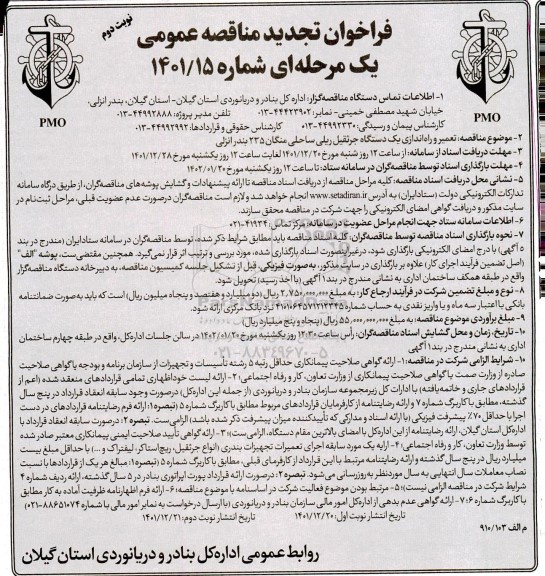 نوبت دوم
فراخوان تجدید مناقصه عمومی
یک مرحله‌ای شماره ۱۴۰۱/۱۵
PMO
PMO
۱- اطلاعات تماس دستگاه مناقصه‌گزار: اداره کل بنادر و دریانوردی استان گیلان- استان گیلان، بندر انزلی،
خیابان شهید مصطفی خمینی- نمابر: ۴۴۴۲۳۹۰۲-۰۱۳ تلفن مدیر پروژه: ۴۴۹۹۲۸۸۸-۰۱۳
کارشناس پیمان و رسیدگی: ۴۴۹۹۲۳۳۰-۰۱۳ کارشناس حقوقی و قراردادها: ۴۴۹۹۲۹۹۲-۰۱۳
۲- موضوع مناقصه: تعمیر و راه‌اندازی یک دستگاه جرثقیل ریلی ساحلی منگان ۲۳۵ بندر انزلی
۳- مهلت دریافت اسناد از سامانه: از ساعت ۱۲ روز شنبه مورخ ۱۴۰۱/۱۲/۲۰ لغایت ساعت ۱۲ روز یکشنبه مورخ ۱۴۰۱/۱۲/۲۸
۴- مهلت بارگذاری اسناد توسط مناقصه‌گران در سامانه ستاد: تا ساعت ۱۲ روز یکشنبه مورخ ۱۴۰۲/۰۱/۲۰
۵- نشانی محل دریافت اسناد مناقصه: کلیه مراحل مناقصه از دریافت اسناد مناقصه تا ارائه پیشنهادات و گشایش پوشه‌های مناقصه‌گران، از طریق درگاه سامانه
تدارکات الکترونیکی دولت (ستادایران) به آدرس www.setadiran.ir انجام خواهد شد و لازم است مناقصه‌گران درصورت عدم عضویت قبلی، مراحل ثبت‌نام در
سایت مذکور و دریافت گواهی امضای الکترونیکی را جهت شرکت در مناقصه محقق سازند.
۶- اطلاعات سامانه ستاد جهت انجام مراحل عضویت در سامانه: مرکز تماس ۴۱۹۳۴-۰۲۱
۷- نحوه بارگذاری اسناد مناقصه توسط مناقصه‌گران: کلیه اسناد مناقصه باید مطابق شرایط ذکر شده، توسط مناقصه‌گران در سامانه ستادایران (مندرج در بند
۵ آگهی) با درج امضای الکترونیکی بارگذاری شود، درغیراینصورت اسناد بارگذاری شده، مورد بررسی و ترتیب اثر قرار نمی‌گیرد. همچنین مقتضی‌ست، پوشه "الف"
(اصل تضمین فرآیند اجرای کار) علاوه بر بارگذاری در سایت مذکور، به‌صورت فیزیکی قبل از تشکیل جلسه کمیسیون مناقصه، به دبیرخانه دستگاه مناقصه‌گزار
واقع در طبقه همکف ساختمان اداری به نشانی مندرج در بند ۱ آگهی (با اخذ رسید) تحویل شود.
۸- نوع و مبلغ تضمین شرکت در فرآیند ارجاع کار: به مبلغ ۲,۷۵۰,۰۰۰,۰۰۰ ریال (دو میلیارد و هفتصد و پنجاه میلیون ریال) است که باید به‌صورت ضمانتنامه
بانکی با اعتبار سه ماه و یا واریز نقدی به حساب شماره نزد بانک مرکزی ارائه شود.
۹- مبلغ برآوردی موضوع مناقصه: به مبلغ ۵۵,۰۰۰,۰۰۰,۰۰۰ ریال (پنجاه و پنج میلیارد ریال)
۹- تاریخ، زمان و محل گشایش اسناد مناقصه‌گران: رأس ساعت ۱۲:۳۰ روز یکشنبه مورخ ۱۴۰۲/۰۱/۲۰ در سالن جلسات اداره‌کل، واقع در طبقه چهارم ساختمان
اداری به نشانی مندرج در بند ۱ آگهی
۱۰- شرایط الزامی شرکت در مناقصه: ۱- ارائه گواهی صلاحیت پیمانکاری حداقل رتبه ۵ رشته تأسیسات و تجهیزات از سازمان برنامه و بودجه یا گواهی صلاحیت
صادره از وزارت صمت یا گواهی صلاحیت پیمانکاری از وزارت تعاون، کار و رفاه اجتماعی؛ ۲- ارائه لیست خوداظهاری تمامی قراردادهای منعقد شده (اعم از
قراردادهای جاری و خاتمه‌یافته) با ادارات کل زیرمجموعه سازمان بنادر و دریانوردی (از جمله این اداره‌کل) درصورت وجود سابقه انعقاد قرارداد در پنج سال
گذشته، مطابق با کاربرگ شماره ۷ و ارائه رضایتنامه از کارفرمایان قراردادهای مربوط مطابق با کاربرگ شماره ۵ (تبصره۱: ارائه فرم رضایتنامه قراردادهای در دست
اجرا با حداقل ۷۰٪ پیشرفت فیزیکی) یا ارائه اسناد و مدارکی که تأییدکننده میزان پیشرفت ذکر شده باشد) الزامی ست. تبصره ۲: درصورت سابقه انعقاد قرارداد با
اداره‌کل استان گیلان، ارائه رضایتنامه از این اداره‌کل با امضای بالاترین مقام دستگاه، الزامی ست)؛ ۳- ارائه گواهی تأیید صلاحیت ایمنی پیمانکاری معتبر صادر شده
توسط وزارت تعاون، کار و رفاه اجتماعی؛ ۴- ارایه یک مورد سابقه اجرای تعمیرات تجهیزات بندری (انواع جرثقیل، ریچ‌استاکر، لیفتراک و ...) با حداقل مبلغ بیست
میلیارد ریال در پنج سال گذشته و ارائه رضایتنامه مرتبط با این قرارداد از کارفرمای قبلی، مطابق با کاربرگ شماره ۵ (تبصره ۱: مبالغ هر یک از قراردادها با نسبت
نصاب معاملات سال انتهایی به سال موردنظر به‌روزرسانی می‌شود. تبصره ۲: درصورت ارائه قرارداد پورت اپراتوری بنادر در ۵ سال گذشته، ارائه ردیف شماره ۴
شرایط شرکت در مناقصه الزامی نیست)؛ ۵- مرتبط بودن موضوع فعالیت شرکت در اساسنامه با موضوع مناقصه؛ ۶- ارائه فرم اظهارنامه ظرفیت آماده به کار مطابق
با کاربرگ شماره ۶؛ ۷- ارائه گواهی عدم بدهی از اداره‌کل امور مالی سازمان بنادر و دریانوردی (با ارسال درخواست به نمابر امور مالی با شماره ۸۸۶۵۱۰۷۴-۰۲۱)
تاریخ انتشار نوبت اول: ۱۴۰۱/۱۲/۲۰ تاریخ انتشار نوبت دوم: ۱۴۰۱/۱۲/۲۱
م الف ۹۱۰/۱۰۳
روابط عمومی اداره‌کل بنادر و دریانوردی استان گیلان